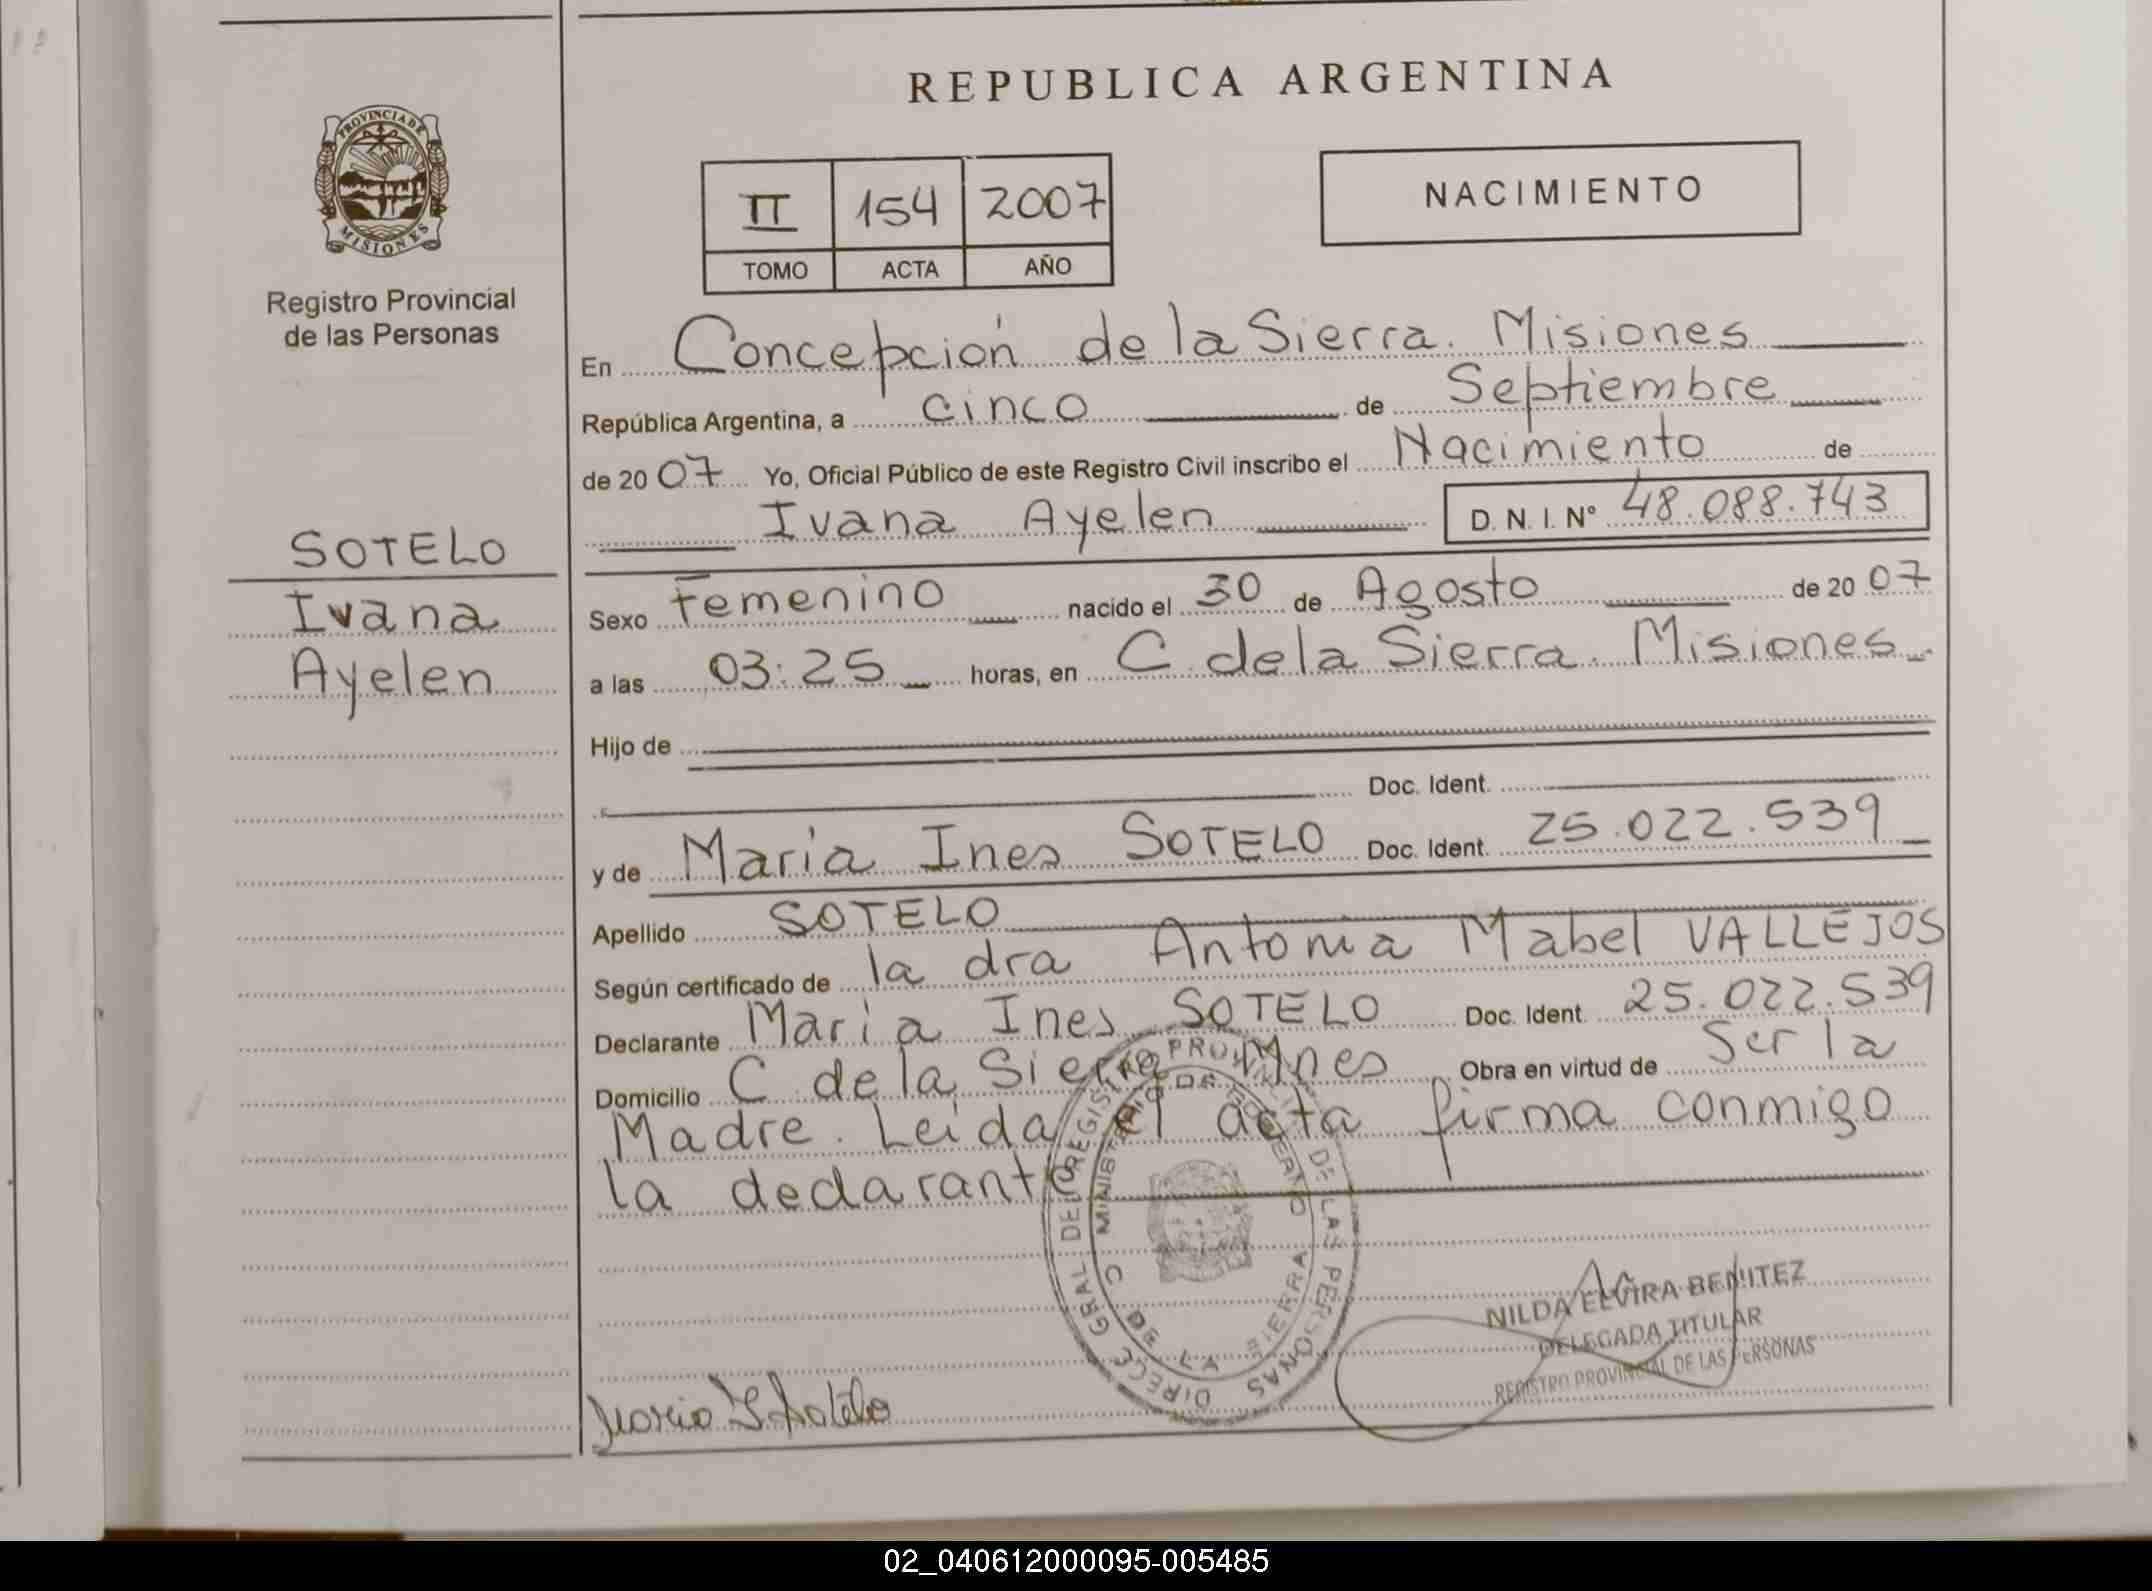 REPUBLICA ARGENTINA
PROVINCIA DE
MISIONES
Registro Provincial
de las Personas
II 154 2007
TOMO ACTA AÑO
NACIMIENTO
En Concepción de la Sierra. Misiones
República Argentina, a cinco de Septiembre
de 20 07 Yo, Oficial Público de este Registro Civil inscribo el Nacimiento de
Ivana Ayelen D. N. I. Nº 48.088.743
SOTELO
Ivana
Ayelen
Sexo Femenino nacido el 30 de Agosto de 20 07
a las 03:25 horas, en C. de la Sierra. Misiones
Hijo de
Doc. Ident.
y de Maria Ines SOTELO Doc. Ident. 25.022.539
Apellido SOTELO
Según certificado de la dra Antonia Mabel VALLEJOS
Declarante Maria Ines SOTELO Doc. Ident. 25.022.539
Domicilio C. de la Sierra Mnes Obra en virtud de Ser la
Madre. Leida el acta firma conmigo
la declarante
DIRECC GRAL DEL REGISTRO PROVINCIAL DE LAS PERSONAS
MINISTERIO DE GOBIERNO
C DE LA SIERRA
NILDA ELVIRA BENITEZ
DELEGADA TITULAR
REGISTRO PROVINCIAL DE LAS PERSONAS
Maria I Sotelo
02_040612000095-005485